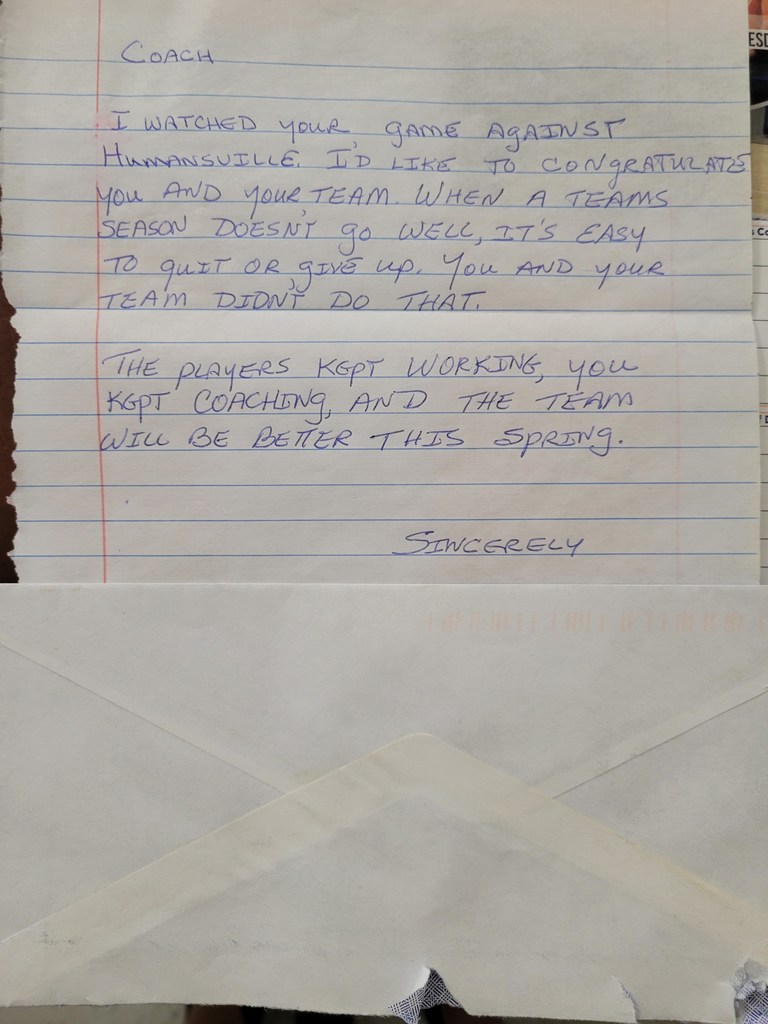 COACH
I WATCHED YOUR GAME AGAINST
HUMANSVILLE. I'D LIKE TO CONGRATULATE
YOU AND YOUR TEAM. WHEN A TEAMS
SEASON DOESN'T GO WELL, IT'S EASY
TO QUIT OR GIVE UP. YOU AND YOUR
TEAM DIDN'T DO THAT.
THE PLAYERS KEPT WORKING, YOU
KEPT COACHING, AND THE TEAM
WILL BE BETTER THIS SPRING.
SINCERELY